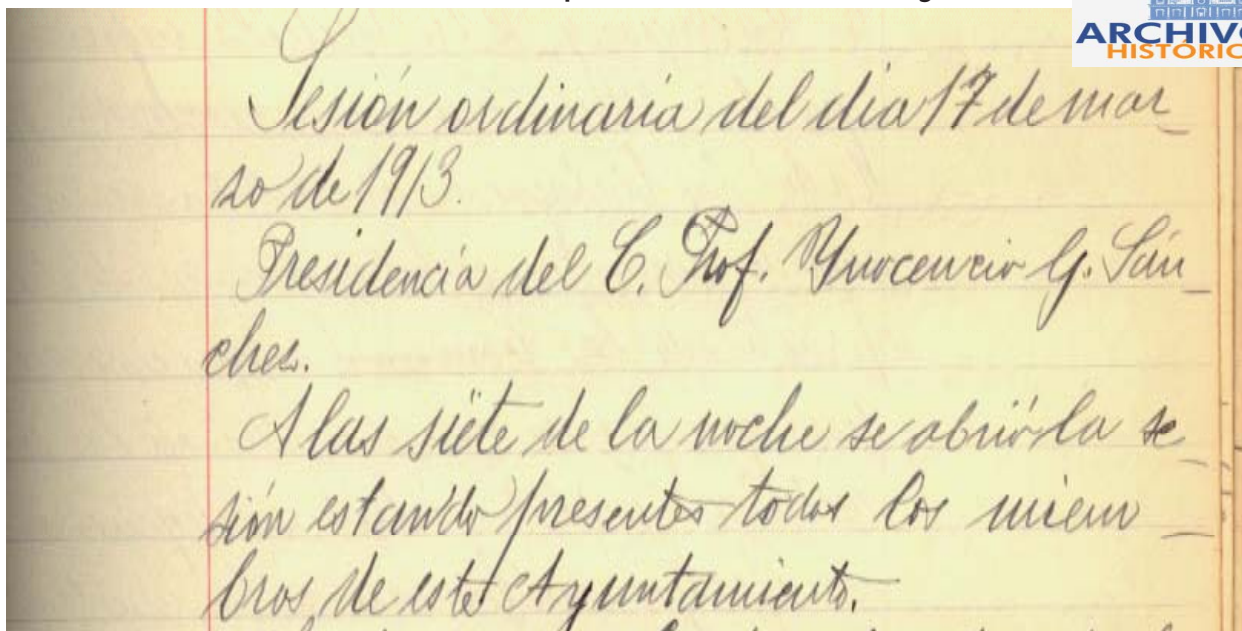 ARCHIVO
HISTÓRIC
Sesión ordinaria del dia 17 de mar_
so de 1913.
Presidencia del C. Prof. Ynocencio G. Sán_
ches.
A las siete de la noche se abrió la se_
sión estando presentes todos los miem_
bros de este Ayuntamiento.